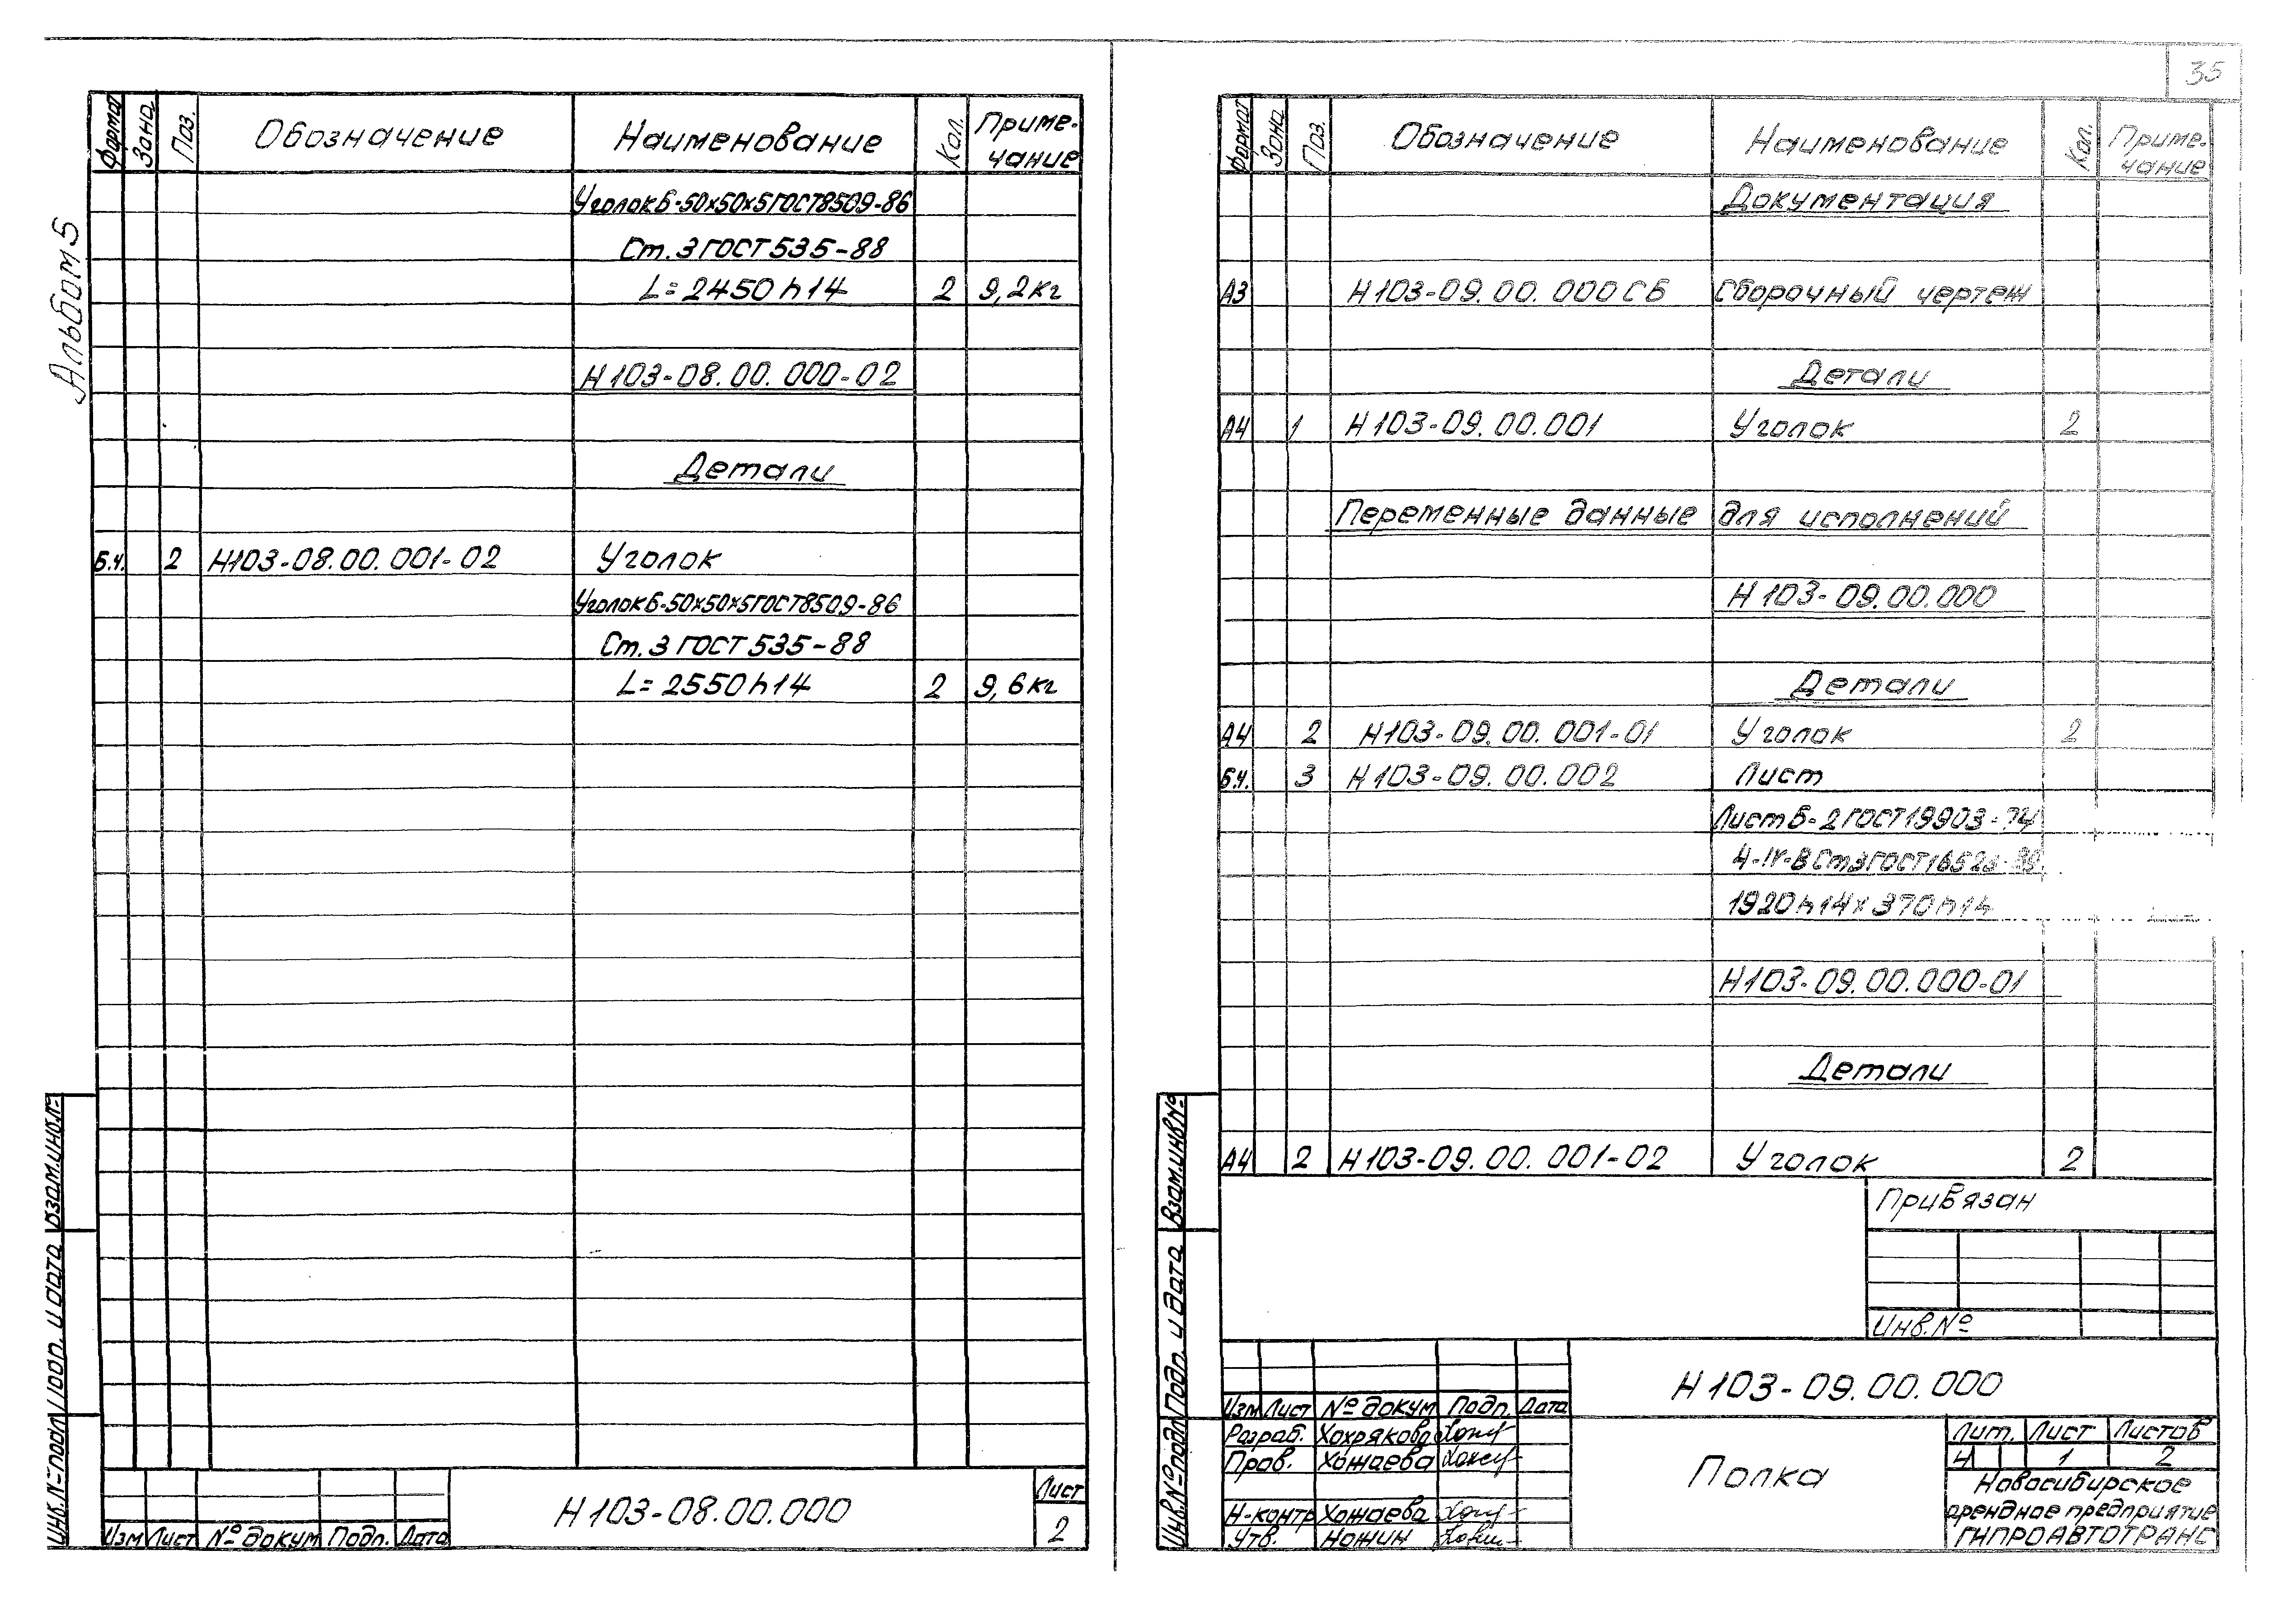 35
Альбом 5
Формат Зона Поз. Обозначение Наименование Кол. Приме-
чание
Уголок Б-50х50х5 ГОСТ 8509-86
Ст.3 ГОСТ 535-88
L=2450h14 2 9,2кг
Н103-08.00.000-02
Детали
Б.ч. 2 Н103-08.00.001-02 Уголок
Уголок Б-50х50х5 ГОСТ 8509-86
Ст.3 ГОСТ 535-88
L=2550h14 2 9,6кг
Инв.№подл Подп. и дата Взам.инв.№
Изм Лист № докум Подп. Дата
Н103-08.00.000
Лист
2
Формат Зона Поз. Обозначение Наименование Кол. Приме-
чание
Документация
А3 Н103-09.00.000СБ Сборочный чертеж
Детали
А4 1 Н103-09.00.001 Уголок 2
Переменные данные для исполнений
Н103-09.00.000
Детали
А4 2 Н103-09.00.001-01 Уголок 2
Б.ч. 3 Н103-09.00.002 Лист
Лист Б-2 ГОСТ 19903-74
4-IV-ВСт3 ГОСТ
1920h14х370h14
Н103-09.00.000-01
Детали
А4 2 Н103-09.00.001-02 Уголок 2
Привязан
Инв.№
Инв.№подл Подп. и дата Взам.инв.№
Н103-09.00.000
Изм Лист № докум Подп. Дата
Разраб. Хохрякова
Пров. Хожаева
Н-контр Хожаева
Утв. Ножин
Полка
Лит. Лист Листов
И 1 2
Новосибирское
арендное предприятие
ГИПРОАВТОТРАНС